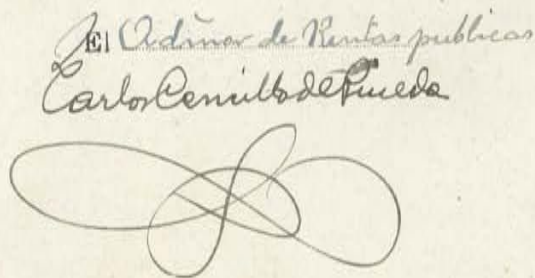 El Admor de Rentas publicas
Carlos Cencillo de Pineda